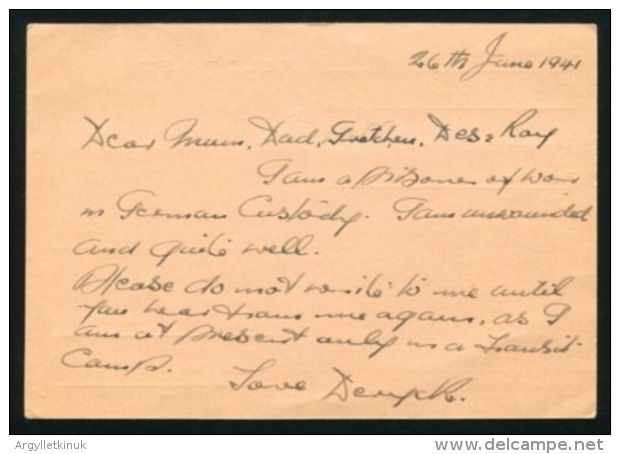 26th June 1941
Dear Mum, Dad, Gretchen, Des & Ray
I am a prisoner of war
in German Custody. I am unwounded
and quite well.
Please do not write to me until
you hear from me again, as I
am at present only in a transit
Camp.
Love Deryck.
Argylletkinuk
www.delcampe.net